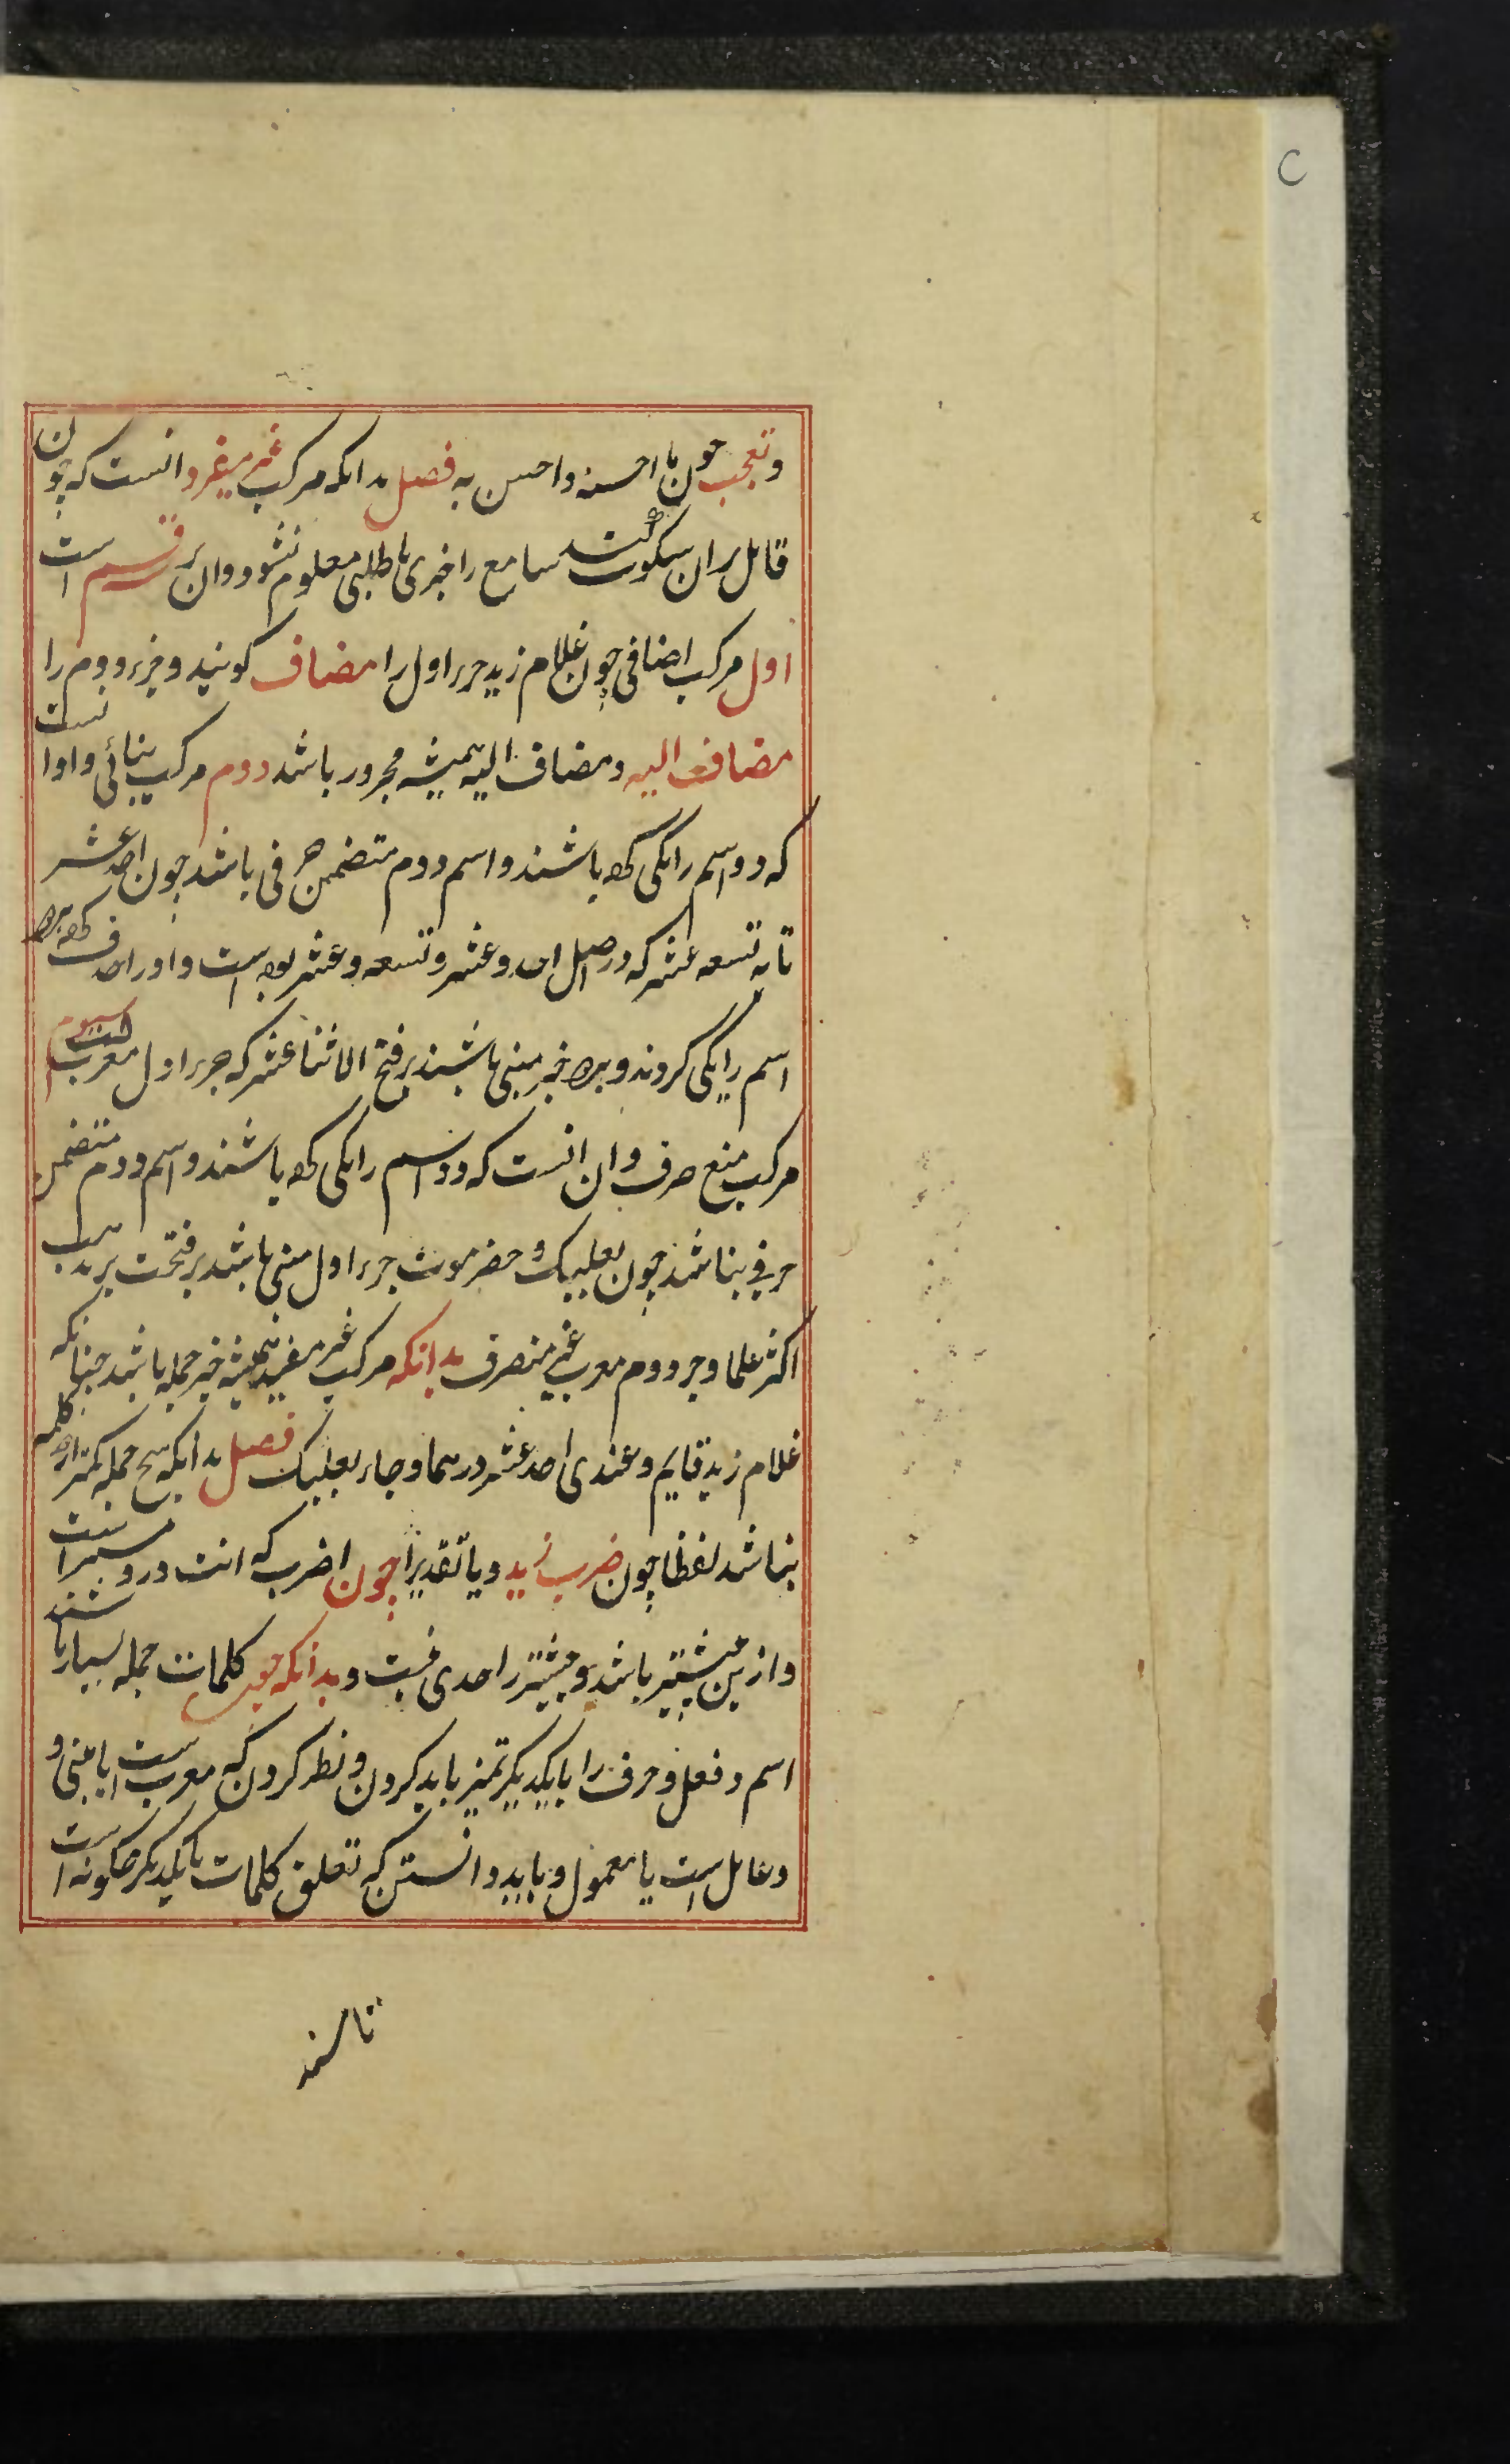 وتعجب چون ما احسنه واحسن به فصل بدانکه مرکب غیر میفرد انست که چون
قائل بران سکوت کند سامع را خبری یا طلبی معلوم نشود وان بر قسم است
اول مرکب اضافی چون غلام زید جزء اول را مضاف کویند وجزء دوم را
مضاف الیه ومضاف الیه همیشه مجرور باشد دوم مرکب بنائی واو انست
که دو اسم را یکی کرده باشند واسم دوم متضمن حرفی باشد چون احد عشر
تا به تسعه عشر که در اصل احد وعشر وتسعه وعشر بوده است واو را حذف کرده هر دو
اسم را یکی کردند وهر دو جزء مبنی باشند بر فتح الا اثنا عشر که جزء اول معرب است سیوم
مرکب منع صرف وان انست که دو اسم را یکی کرده باشند واسم دوم متضمن
حرفی نباشد چون بعلبک و حضرموت جزء اول مبنی باشد بر فتحت بر مذهب
اکثر علما وجزء دوم معرب غیر منصرف بدانکه مرکب غیر مفید همیشه جزء جمله باشد چنانکه
غلام زید قایم وعندی احد عشر درهما وجاء بعلبک فصل بدانکه هیچ جمله کمتر از دو کلمه
نباشد لفظا چون ضرب زید ویا تقدیرا چون اضرب که انت درو مستتر است
وازین بیشتر باشد وبیشتر را حدی نیست وبدانکه چون کلمات جمله بسیار باشند
اسم وفعل وحرف را با یکدیکر تمیز باید کردن ونظر کردن که معرب است یا مبنی و
وعامل است یا معمول وباید دانستن که تعلق کلمات با یکدیکر چکونه است
تا مسند